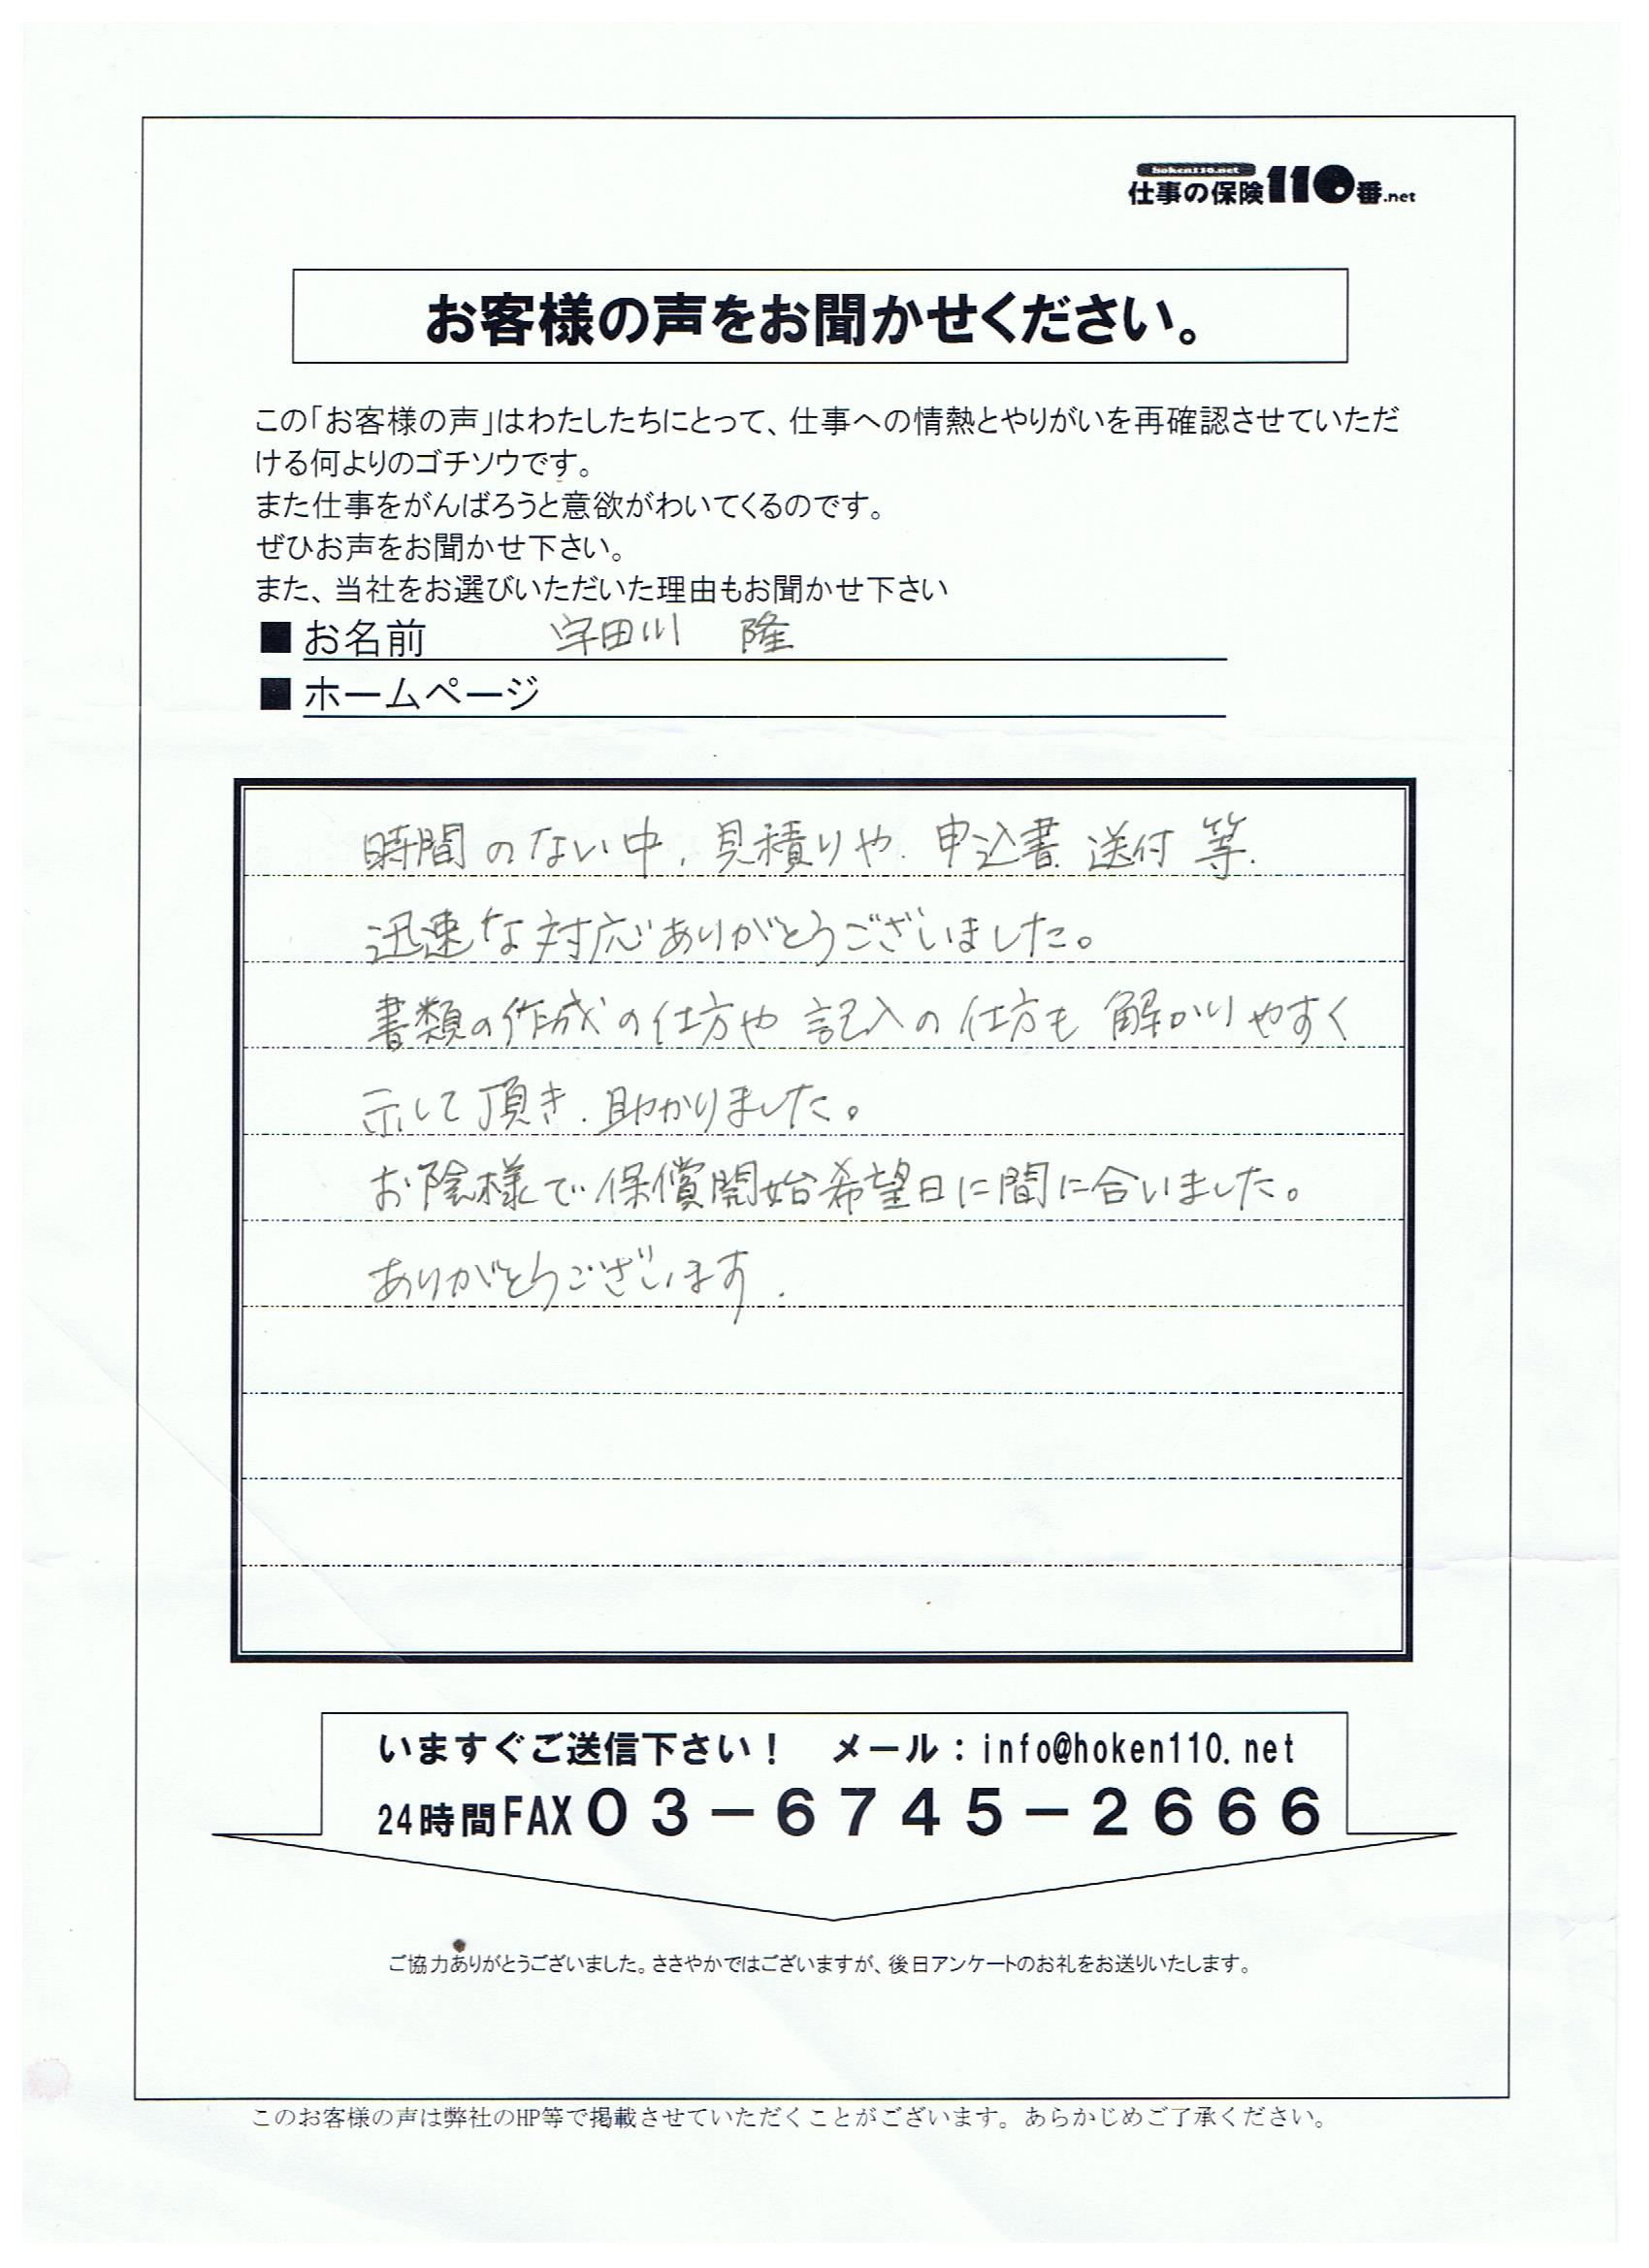 hoken110.net
仕事の保険110番.net
お客様の声をお聞かせください。
この「お客様の声」はわたしたちにとって、仕事への情熱とやりがいを再確認させていただ
ける何よりのゴチソウです。
また仕事をがんばろうと意欲がわいてくるのです。
ぜひお声をお聞かせ下さい。
また、当社をお選びいただいた理由もお聞かせ下さい
■お名前 宇田川 隆
■ホームページ
時間のない中、見積りや、申込書、送付等、
迅速な対応ありがとうございました。
書類の作成の仕方や記入の仕方も解かりやすく
示して頂き、助かりました。
お陰様で保償開始希望日に間に合いました。
ありがとうございます.
いますぐご送信下さい! メール：info@hoken110.net
24時間FAX０３－６７４５－２６６６
ご協力ありがとうございました。ささやかではございますが、後日アンケートのお礼をお送りいたします。
このお客様の声は弊社のHP等で掲載させていただくことがございます。あらかじめご了承ください。